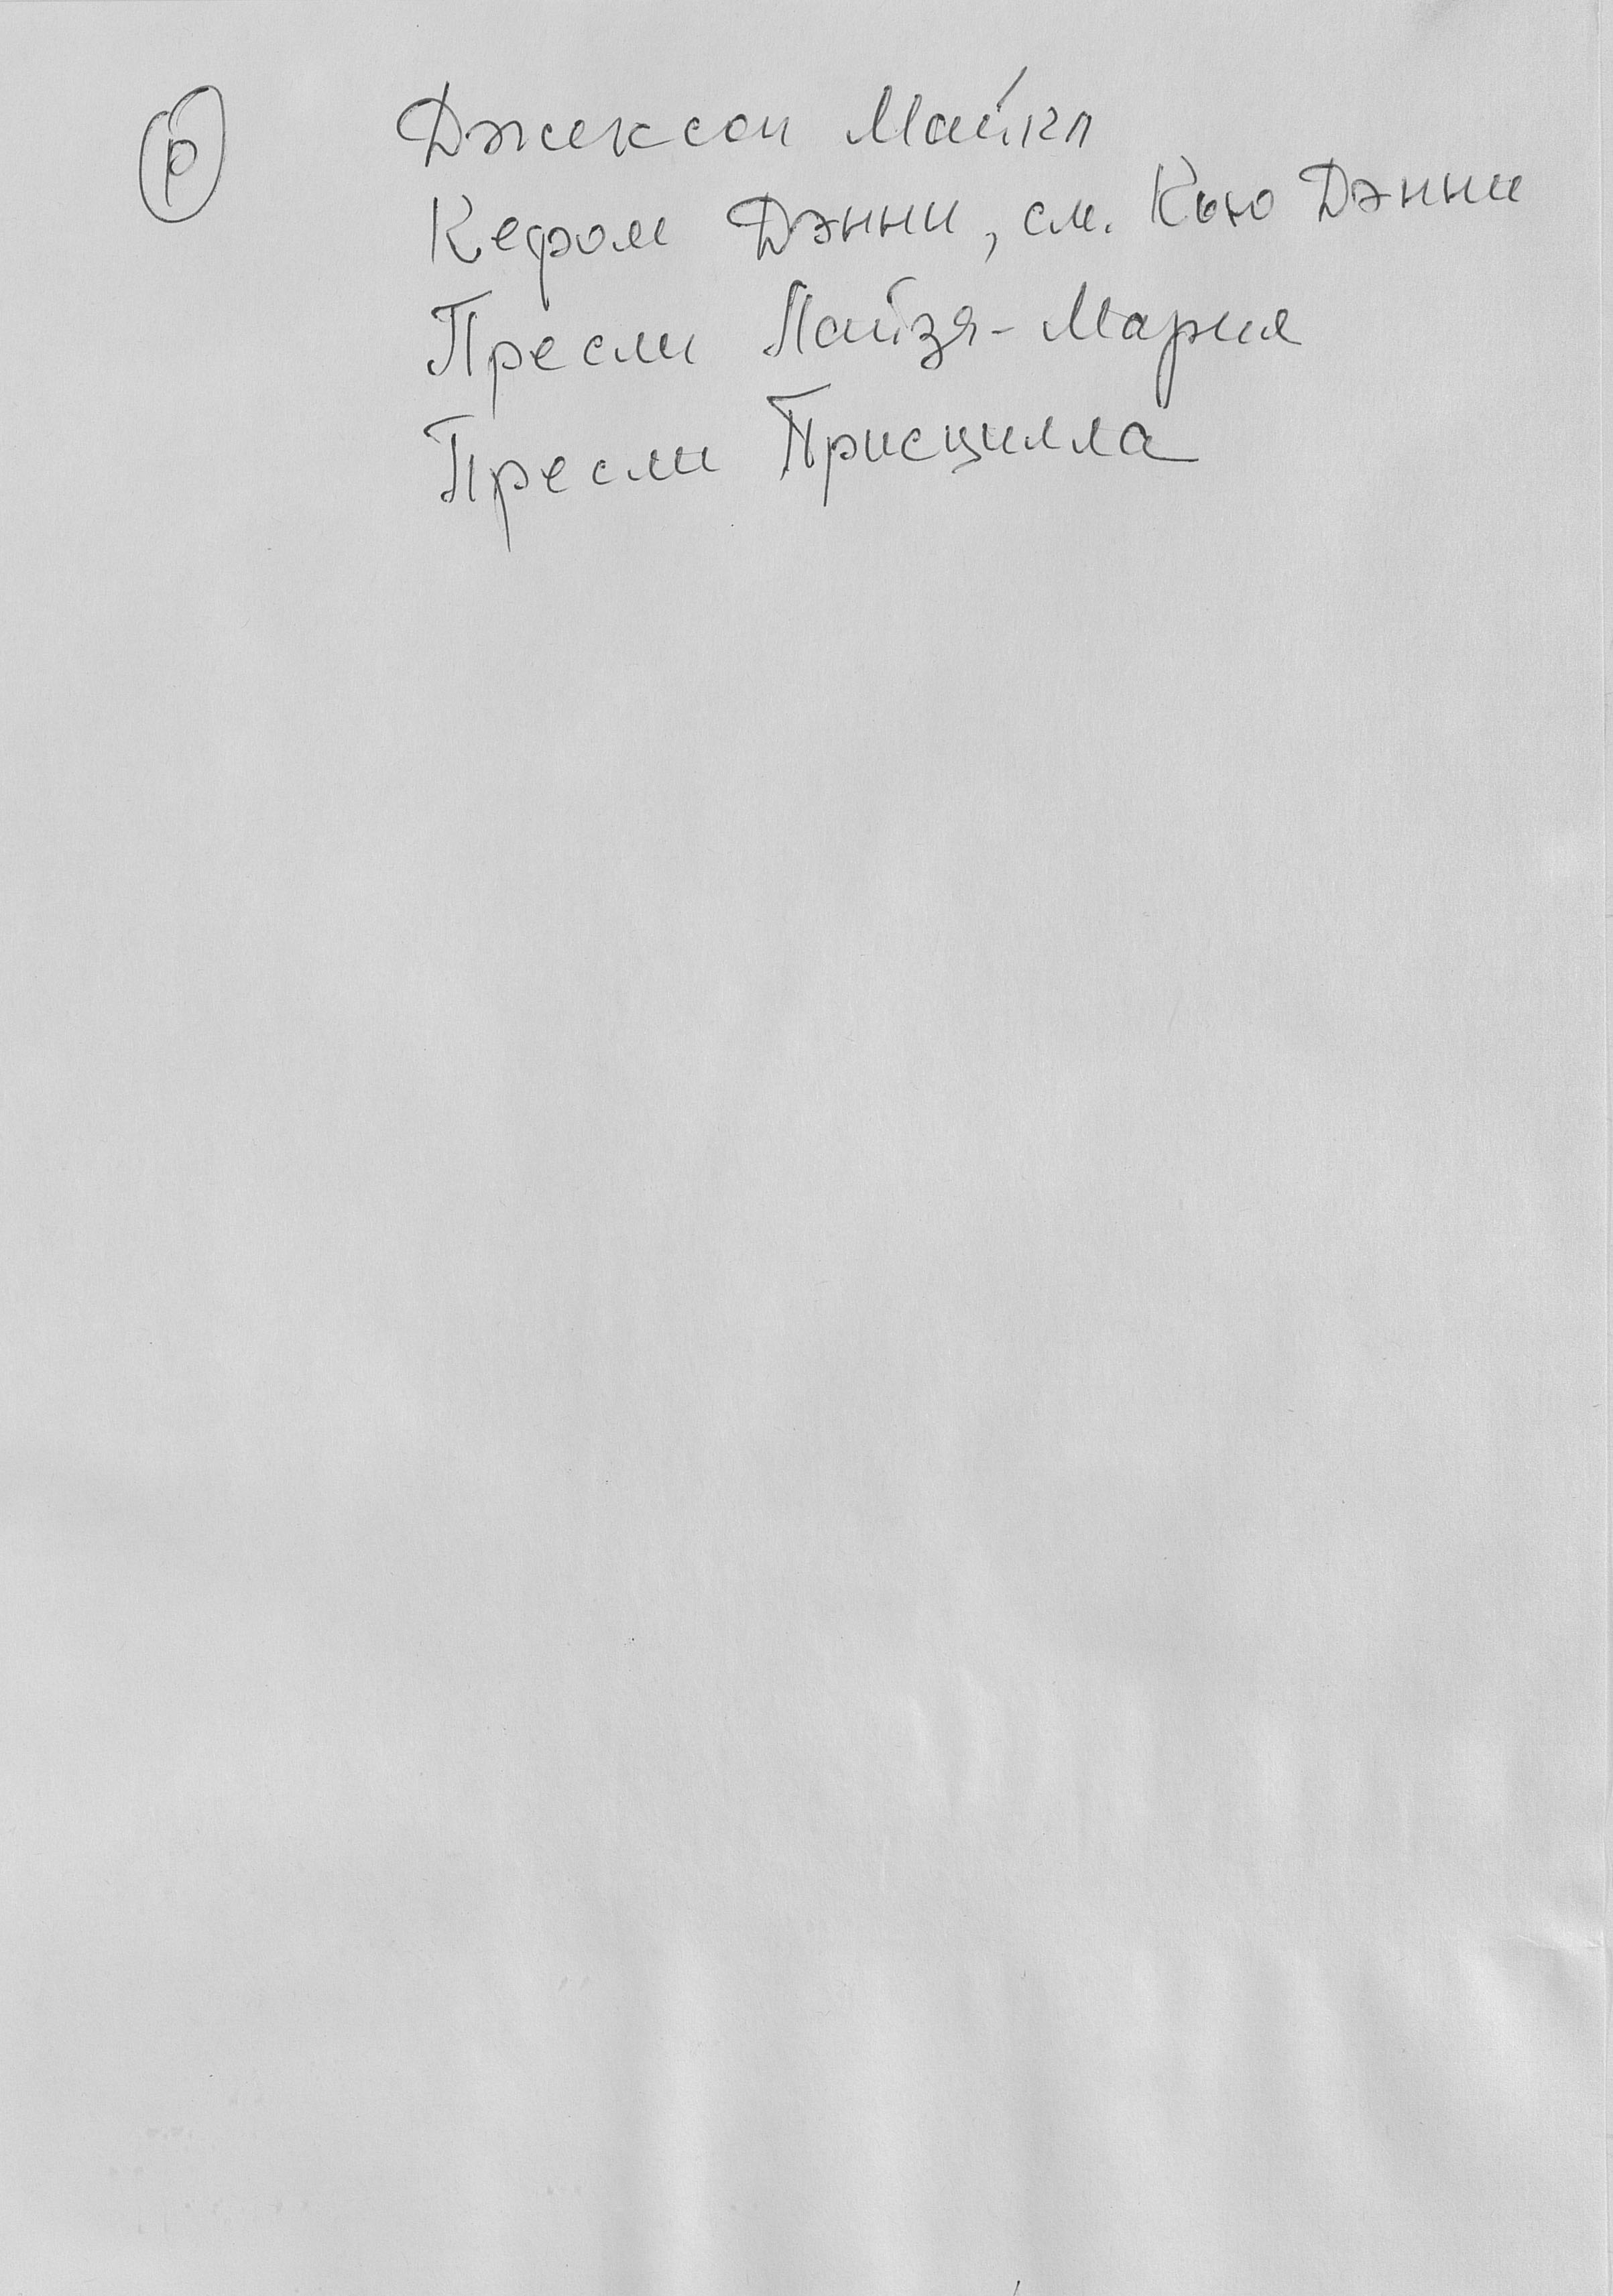 р Джексон Майкл
Кефом Дэнни, см. Кью Дэнни
Пресли Лайзя-Мария
Пресли Присцилла